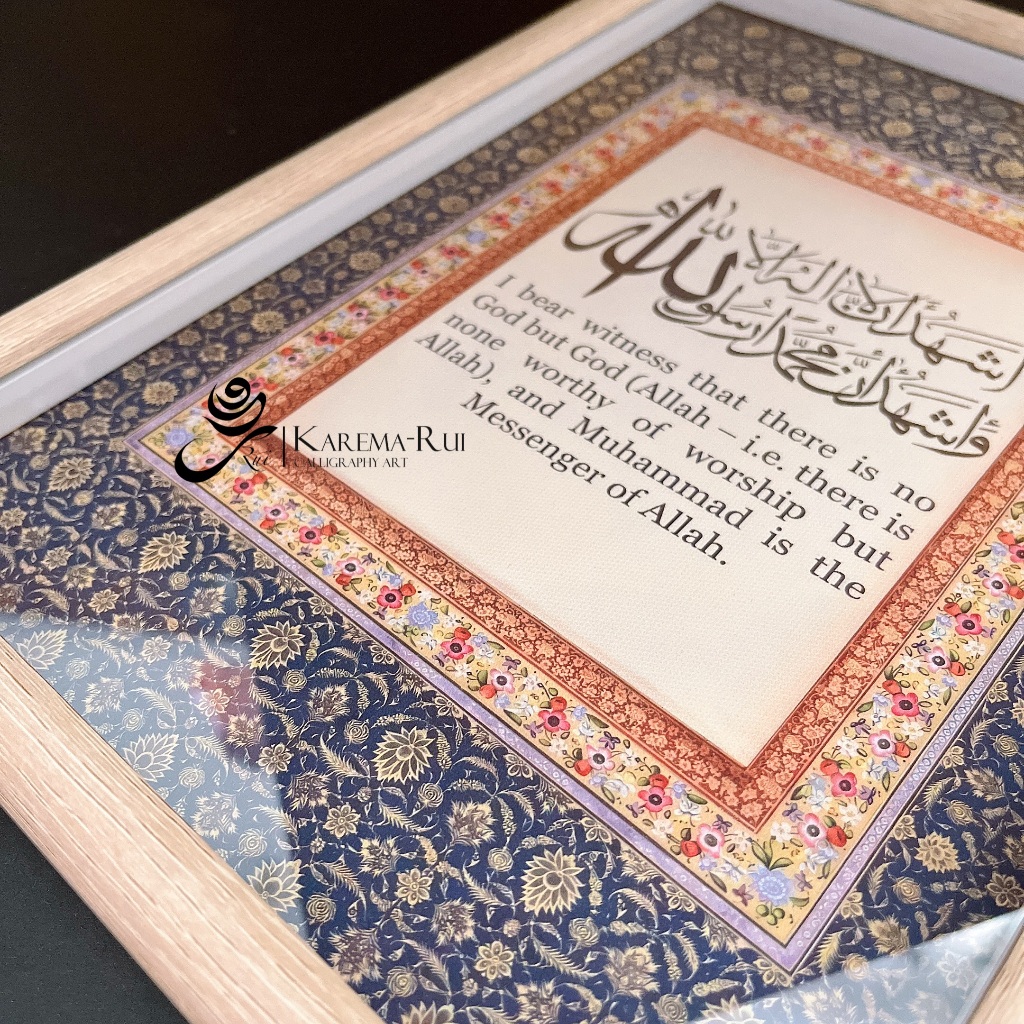 أشهد أن لا إله إلا الله
وأشهد أن محمدا رسول الله
I bear witness that there is no
God but God (Allah – i.e. there is
none worthy of worship but
Allah), and Muhammad is the
Messenger of Allah.
Rui | KAREMA-RUI
CALLIGRAPHY ART